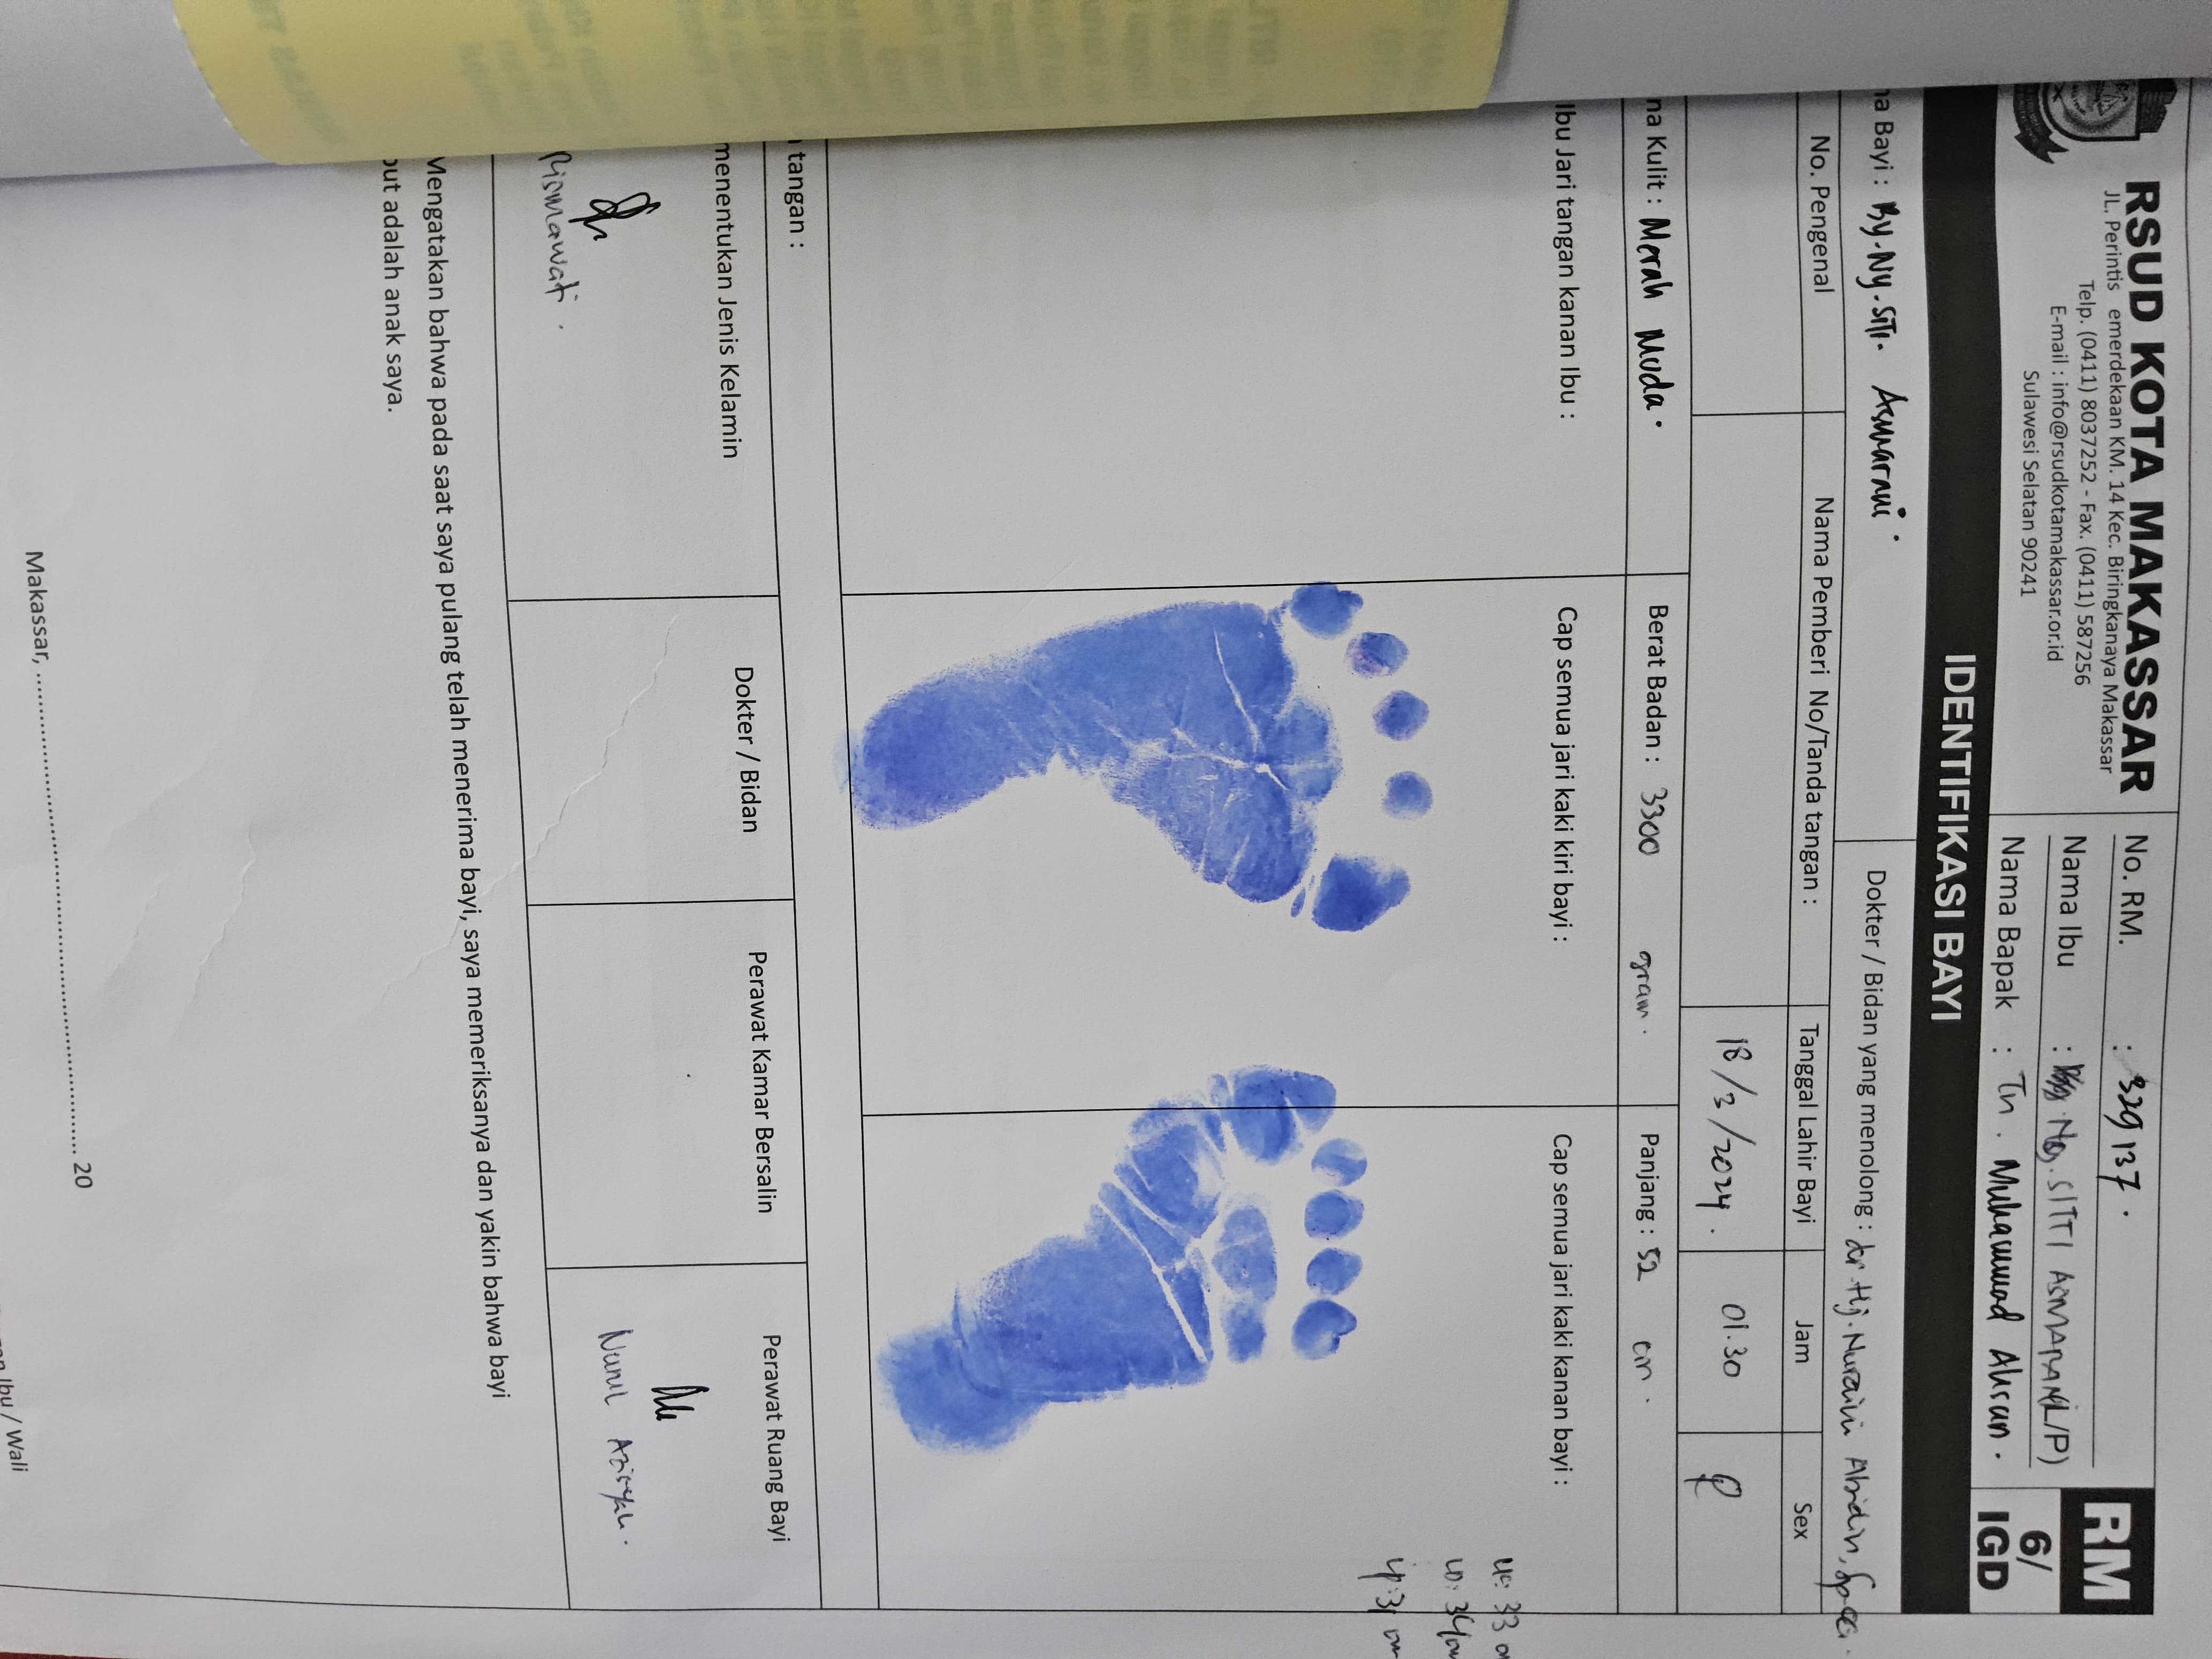 RSUD KOTA MAKASSAR
JL. Perintis emerdekaan KM. 14 Kec. Biringkanaya Makassar
Telp. (0411) 8037252 - Fax. (0411) 587256
E-mail : info@rsudkotamakassar.or.id
Sulawesi Selatan 90241
No. RM. : 329137.
Nama Ibu : Ny. SITTI ASMARANI (L/P)
Nama Bapak : Tn. Muhammad Ahsan.
RM
6/
IGD
IDENTIFIKASI BAYI
na Bayi : By. Ny. SiTi. Asmarani.
Dokter / Bidan yang menolong : dr Hj. Nuraini Abidin,
No. Pengenal
Nama Pemberi No/Tanda tangan :
Tanggal Lahir Bayi
Jam
Sex
18/3/2024.
01.30
P
na Kulit : Merah Muda.
Berat Badan : 3300 gram.
Panjang : 52 cm.
Ibu Jari tangan kanan Ibu :
Cap semua jari kaki kiri bayi :
Cap semua jari kaki kanan bayi :
tangan :
menentukan Jenis Kelamin
Dokter / Bidan
Perawat Kamar Bersalin
Perawat Ruang Bayi
Rismawati.
Nurul
Mengatakan bahwa pada saat saya pulang telah menerima bayi, saya memeriksanya dan yakin bahwa bayi
but adalah anak saya.
Makassar, ........................................ 20
Ibu / Wali